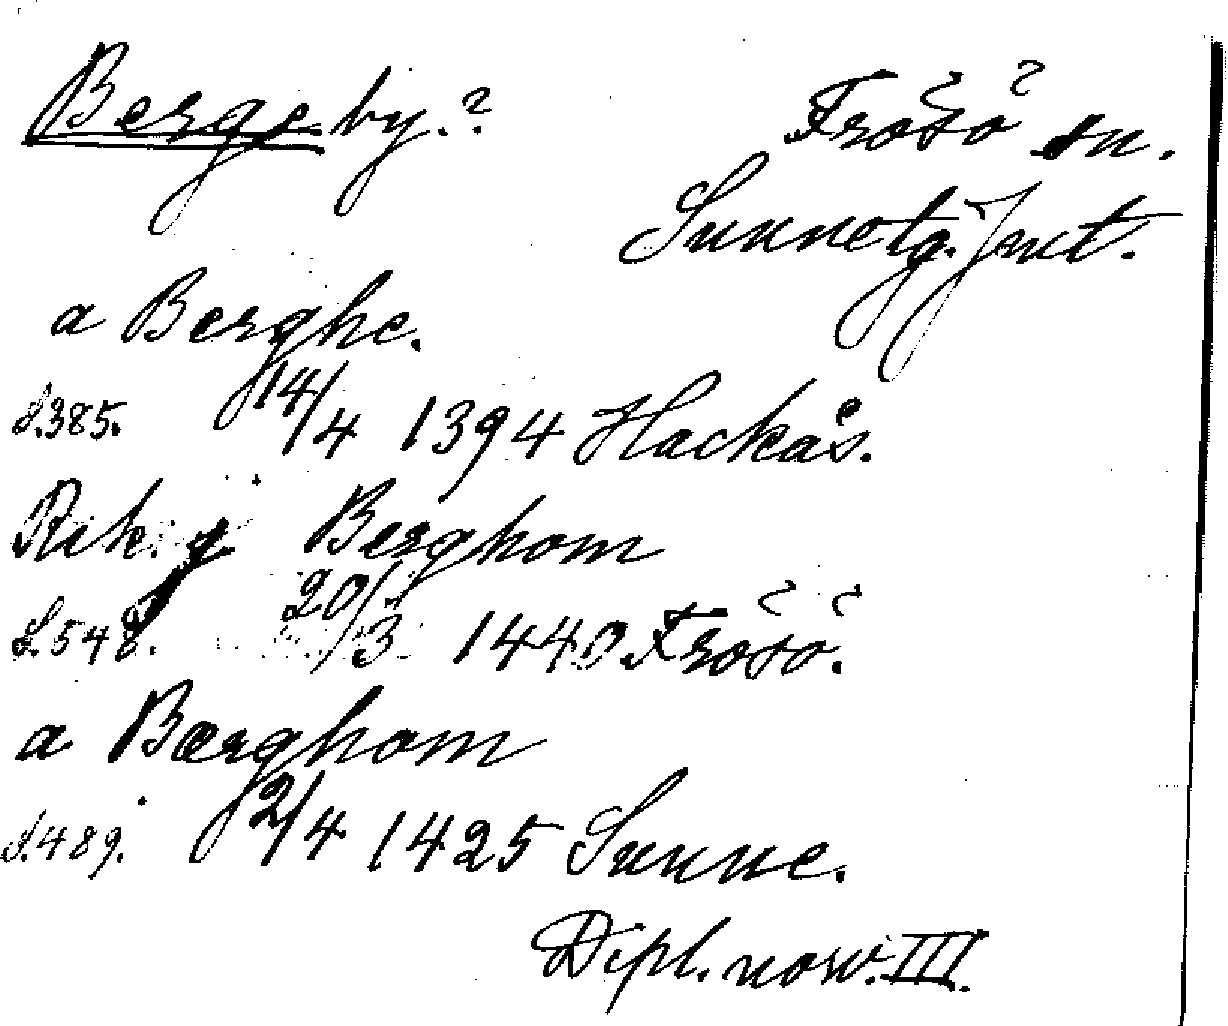 Berge by.? Frösö sn.
Sunne tg. Jmt.
a Berghe.
S.385. 14/4 1394 Hackås.
Rek. j Berghom
S.548. 20/3 1440. Frösö.
a Bærghom
S.489. 2/4 1425 Sunne.
Dipl. norv. III.